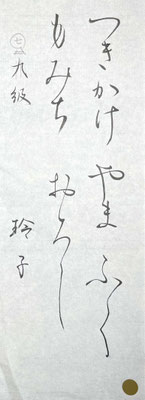 つきかけ やま ふく
もみち おろし
九級 玲子
七